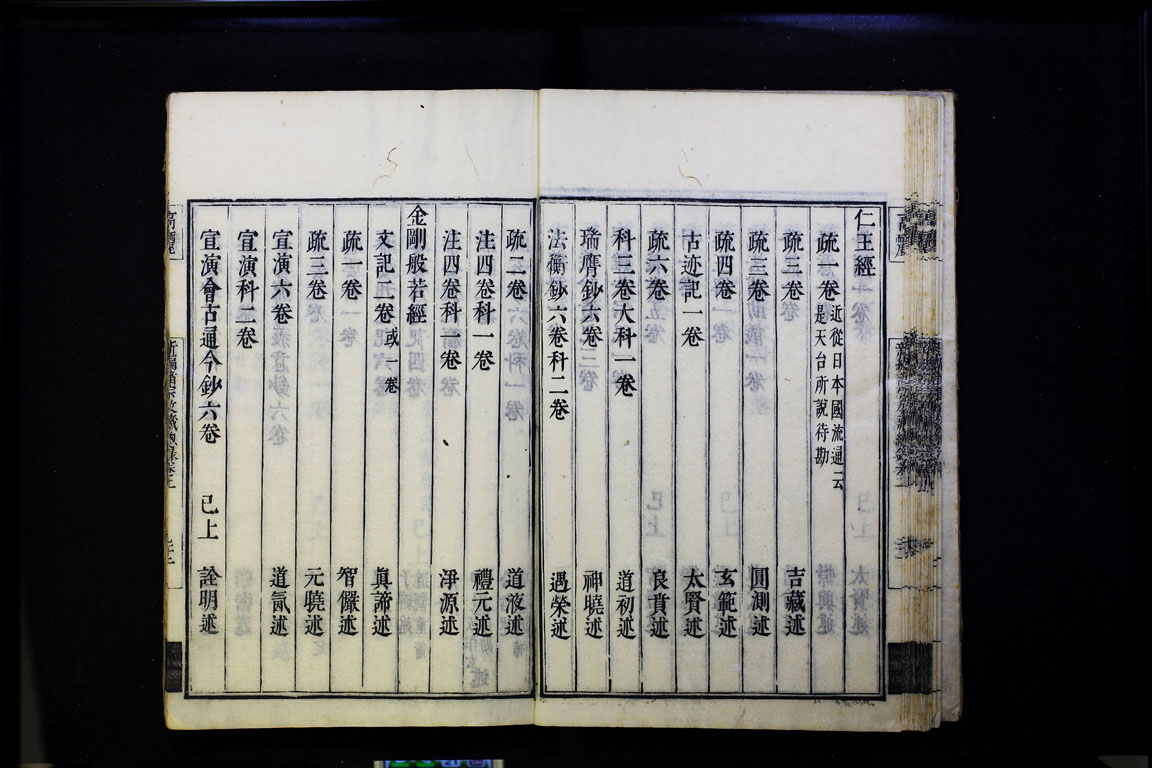 仁王經
疏一卷近從日本國流通云
是天台所說待勘
疏三卷 吉藏述
疏三卷 圓測述
疏四卷 玄範述
古迹記一卷 太賢述
疏六卷 良賁述
科三卷大科一卷 道初述
瑞膺鈔六卷 神曉述
法衡鈔六卷科二卷 遇榮述
疏二卷 道液述
注四卷科一卷 禮元述
注四卷科一卷 淨源述
金剛般若經
文記二卷或一卷 眞諦述
疏一卷 智儼述
疏三卷 元曉述
宣演六卷 道氤述
宣演科二卷
宣演會古通今鈔六卷 已上 詮明述